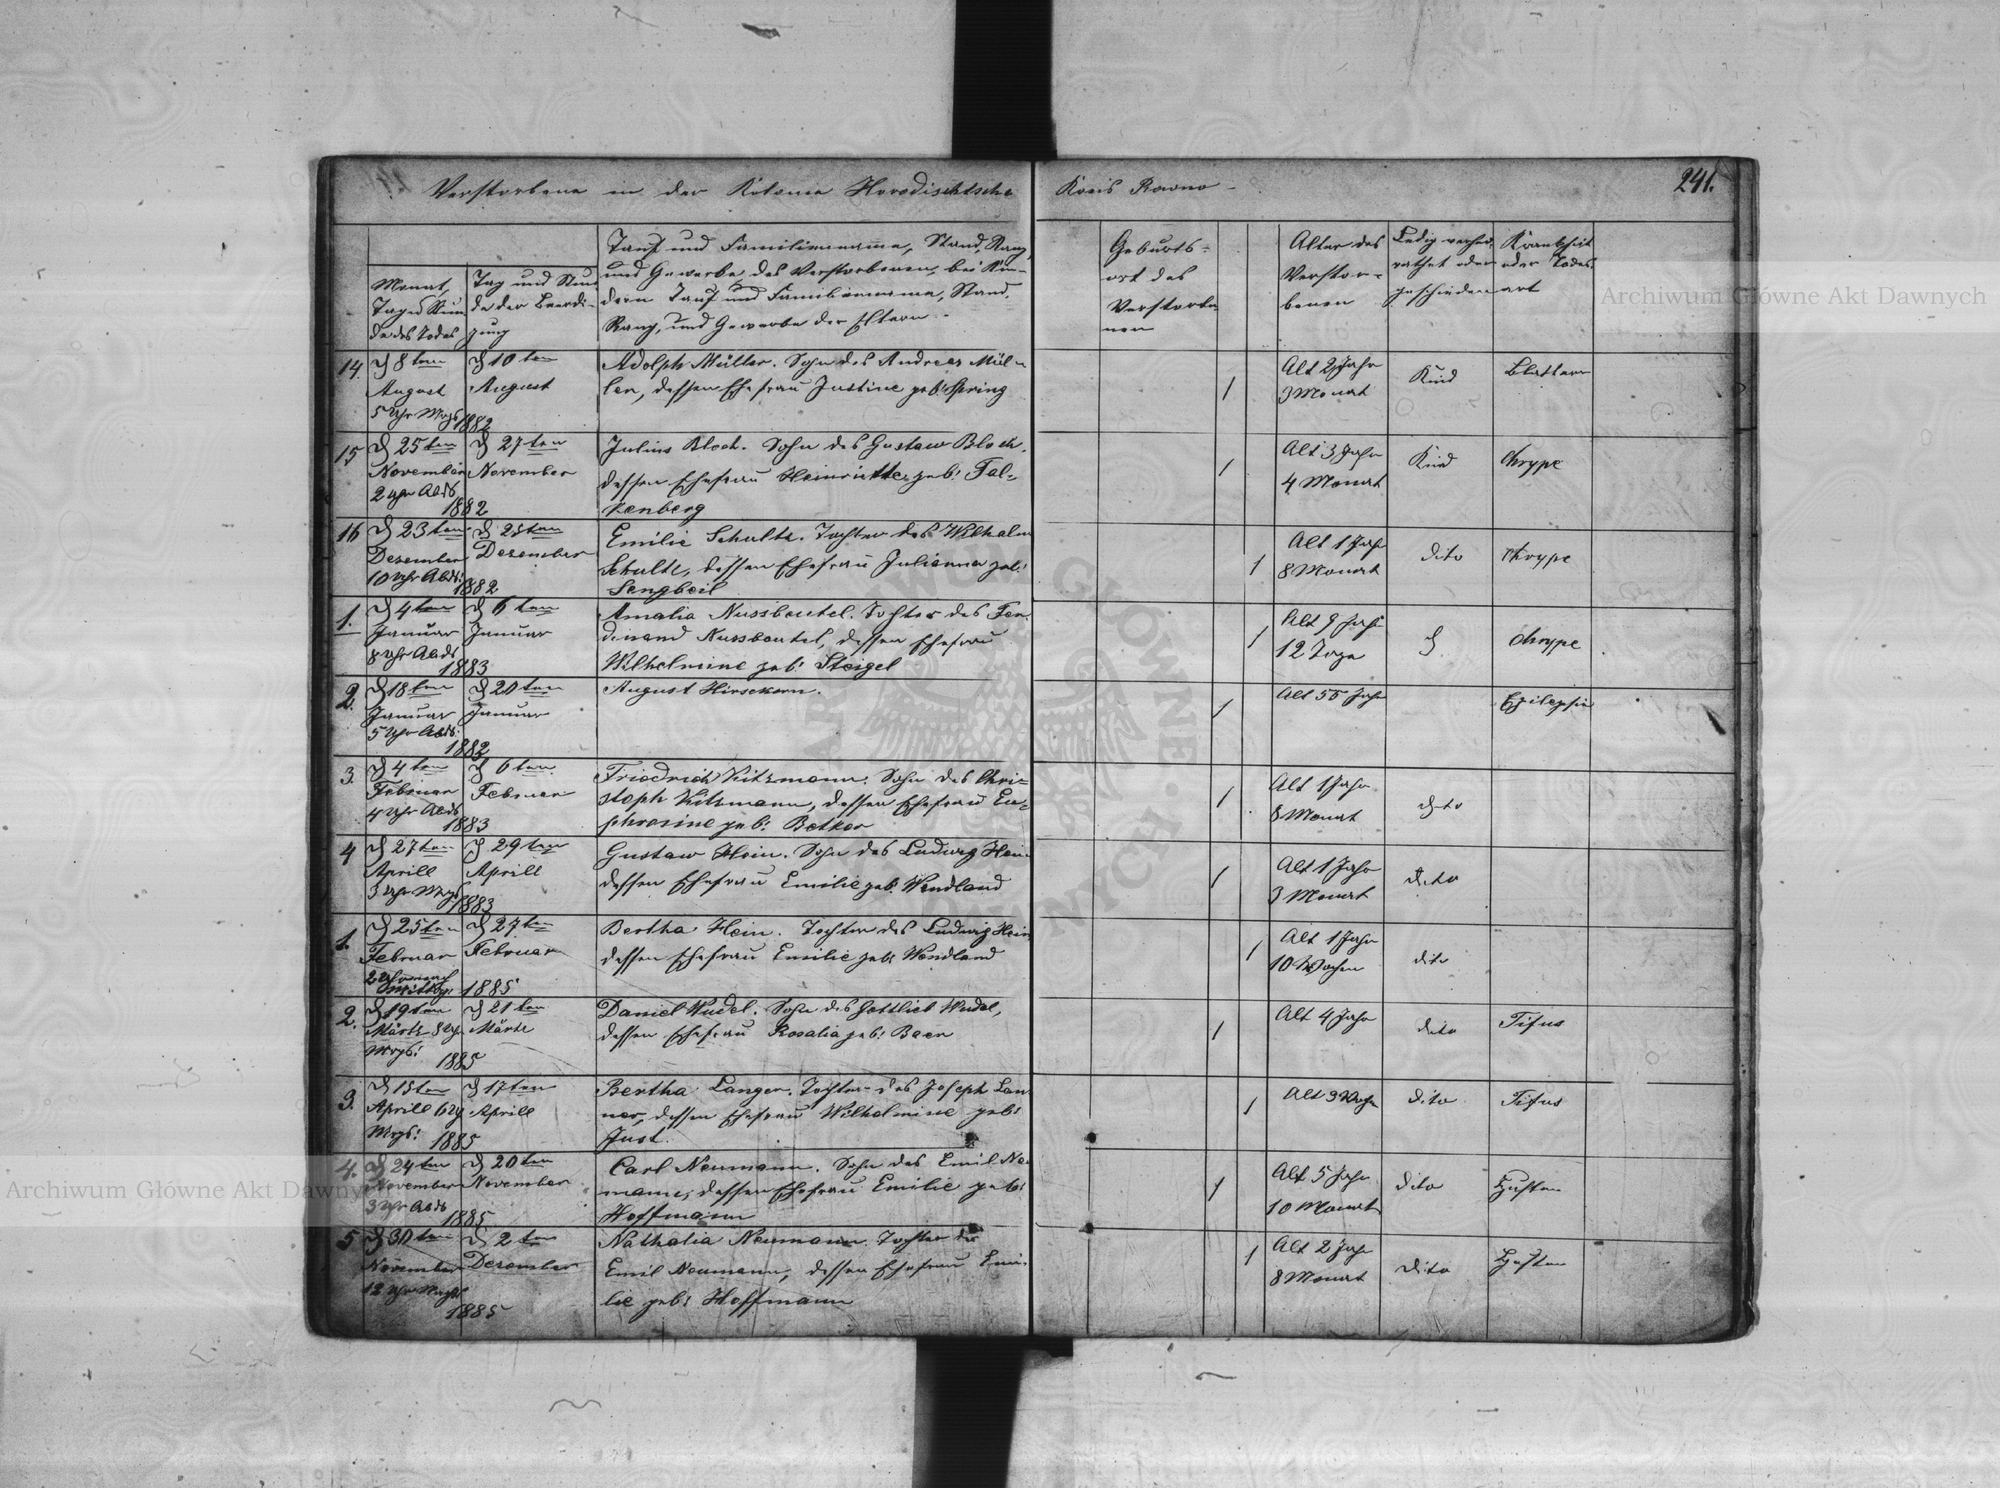 Verstorbene in der Kolonie Horodischtsche Kreis Rowno
241.
Monat,
Tag u Stun
de des Todes
Tag und Stun
de der Beerdi-
gung
Tauf und Familienname, Stand, Rang,
und Gewerbe des Verstorbenen, bei Kin-
dern Tauf und Familienname, Stand,
Rang, und Gewerbe der Eltern.
Geburts-
ort des
Verstorbe-
nen
Alter des
Verstor-
benen
Ledig verhei-
rathet oder
geschieden
Krankheit
oder Todes-
art
14. d 8ten
August
5 Uhr Mrgs
d 10ten
August
1882
Adolph Müller. Sohn des Andreas Mül-
ler, dessen Ehefrau Justine geb: Spring
1
Alt 2 Jahr
3 Monat
Kind
Blattern
15 d 25ten
November
2 Uhr Abds
d 27ten
November
1882
Julius Bloch. Sohn des Gustaw Bloch,
dessen Ehefrau Heinriette geb: Fal-
kenberg
1
Alt 3 Jahr
4 Monat
Kind
Chrype
16 d 23ten
Dezember
10 Uhr Abds:
d 25ten
Dezember
1882
Emilie Schultz. Tochter des Wilhelm
Schultz, dessen Ehefrau Julianna geb:
Sengbeil
1
Alt 1 Jahr
8 Monat
dito
Chrype
1. d 4ten
Januar
8 Uhr Abds
d 6ten
Januar
1883
Amalia Nussbeutel. Tochter des Fer-
dinand Nussbeutel, dessen Ehefrau
Wilhelmine geb: Steigel
1
Alt 9 Jahr
12 Tage
d.
Chrype
2. d 18ten
Januar
5 Uhr Abds.
d 20ten
Januar
1882
August Hirsekorn.
1
Alt 55 Jahr
Epilepsie
3. d 4ten
Februar
4 Uhr Abds
d 6ten
Februar
1883
Friedrich Kitzmann. Sohn des Chri-
stoph Kitzmann, dessen Ehefrau Eu-
phrosine geb: Betker
1
Alt 1 Jahr
8 Monat
dito
4 d 27ten
Aprill
3 Uhr Mrgs
d 29ten
Aprill
1883
Gustaw Hein. Sohn des Ludwig Hein
dessen Ehefrau Emilie geb. Wendland
1
Alt 1 Jahr
3 Monat
dito
1. d 25ten
Februar
2 Uhr nach
Mittag.
d 27ten
Februar
1885
Bertha Hein. Tochter des Ludwig Hein
dessen Ehefrau Emilie geb: Wendland
1
Alt 1 Jahr
10 Wochen
dito
2. d 19ten
Märtz 8 Uhr
Mrgs:
d 21ten
Märtz
1885
Daniel Wudel. Sohn des Gottlieb Wudel,
dessen Ehefrau Rosalia geb: Baer
1
Alt 4 Jahr
dito
Tifus
3. d 15ten
Aprill 6 Uhr
Mrgs:
d 17ten
Aprill
1885
Bertha Langer. Tochter des Joseph Lan
ner, dessen Ehefrau Wilhelmine geb:
Just.
1
Alt 3 Wochn
dito
Tifus
4. d 24ten
November
3 Uhr Abds
d 20ten
November
1885
Carl Neumann. Sohn des Emil Ne-
mann, dessen Ehefrau Emilie geb:
Hoffmann
1
Alt 5 Jahr
10 Monat
dito
Husten
5 d 30ten
November
12 Uhr
d 2ten
Dezember
1885
Nathalia Neumann. Tochter des
Emil Neumann, dessen Ehefrau Emi-
lie geb: Hoffmann
1
Alt 2 Jahr
8 Monat
dito
Husten
Archiwum Główne Akt Dawnych
Archiwum Główne Akt Dawnych